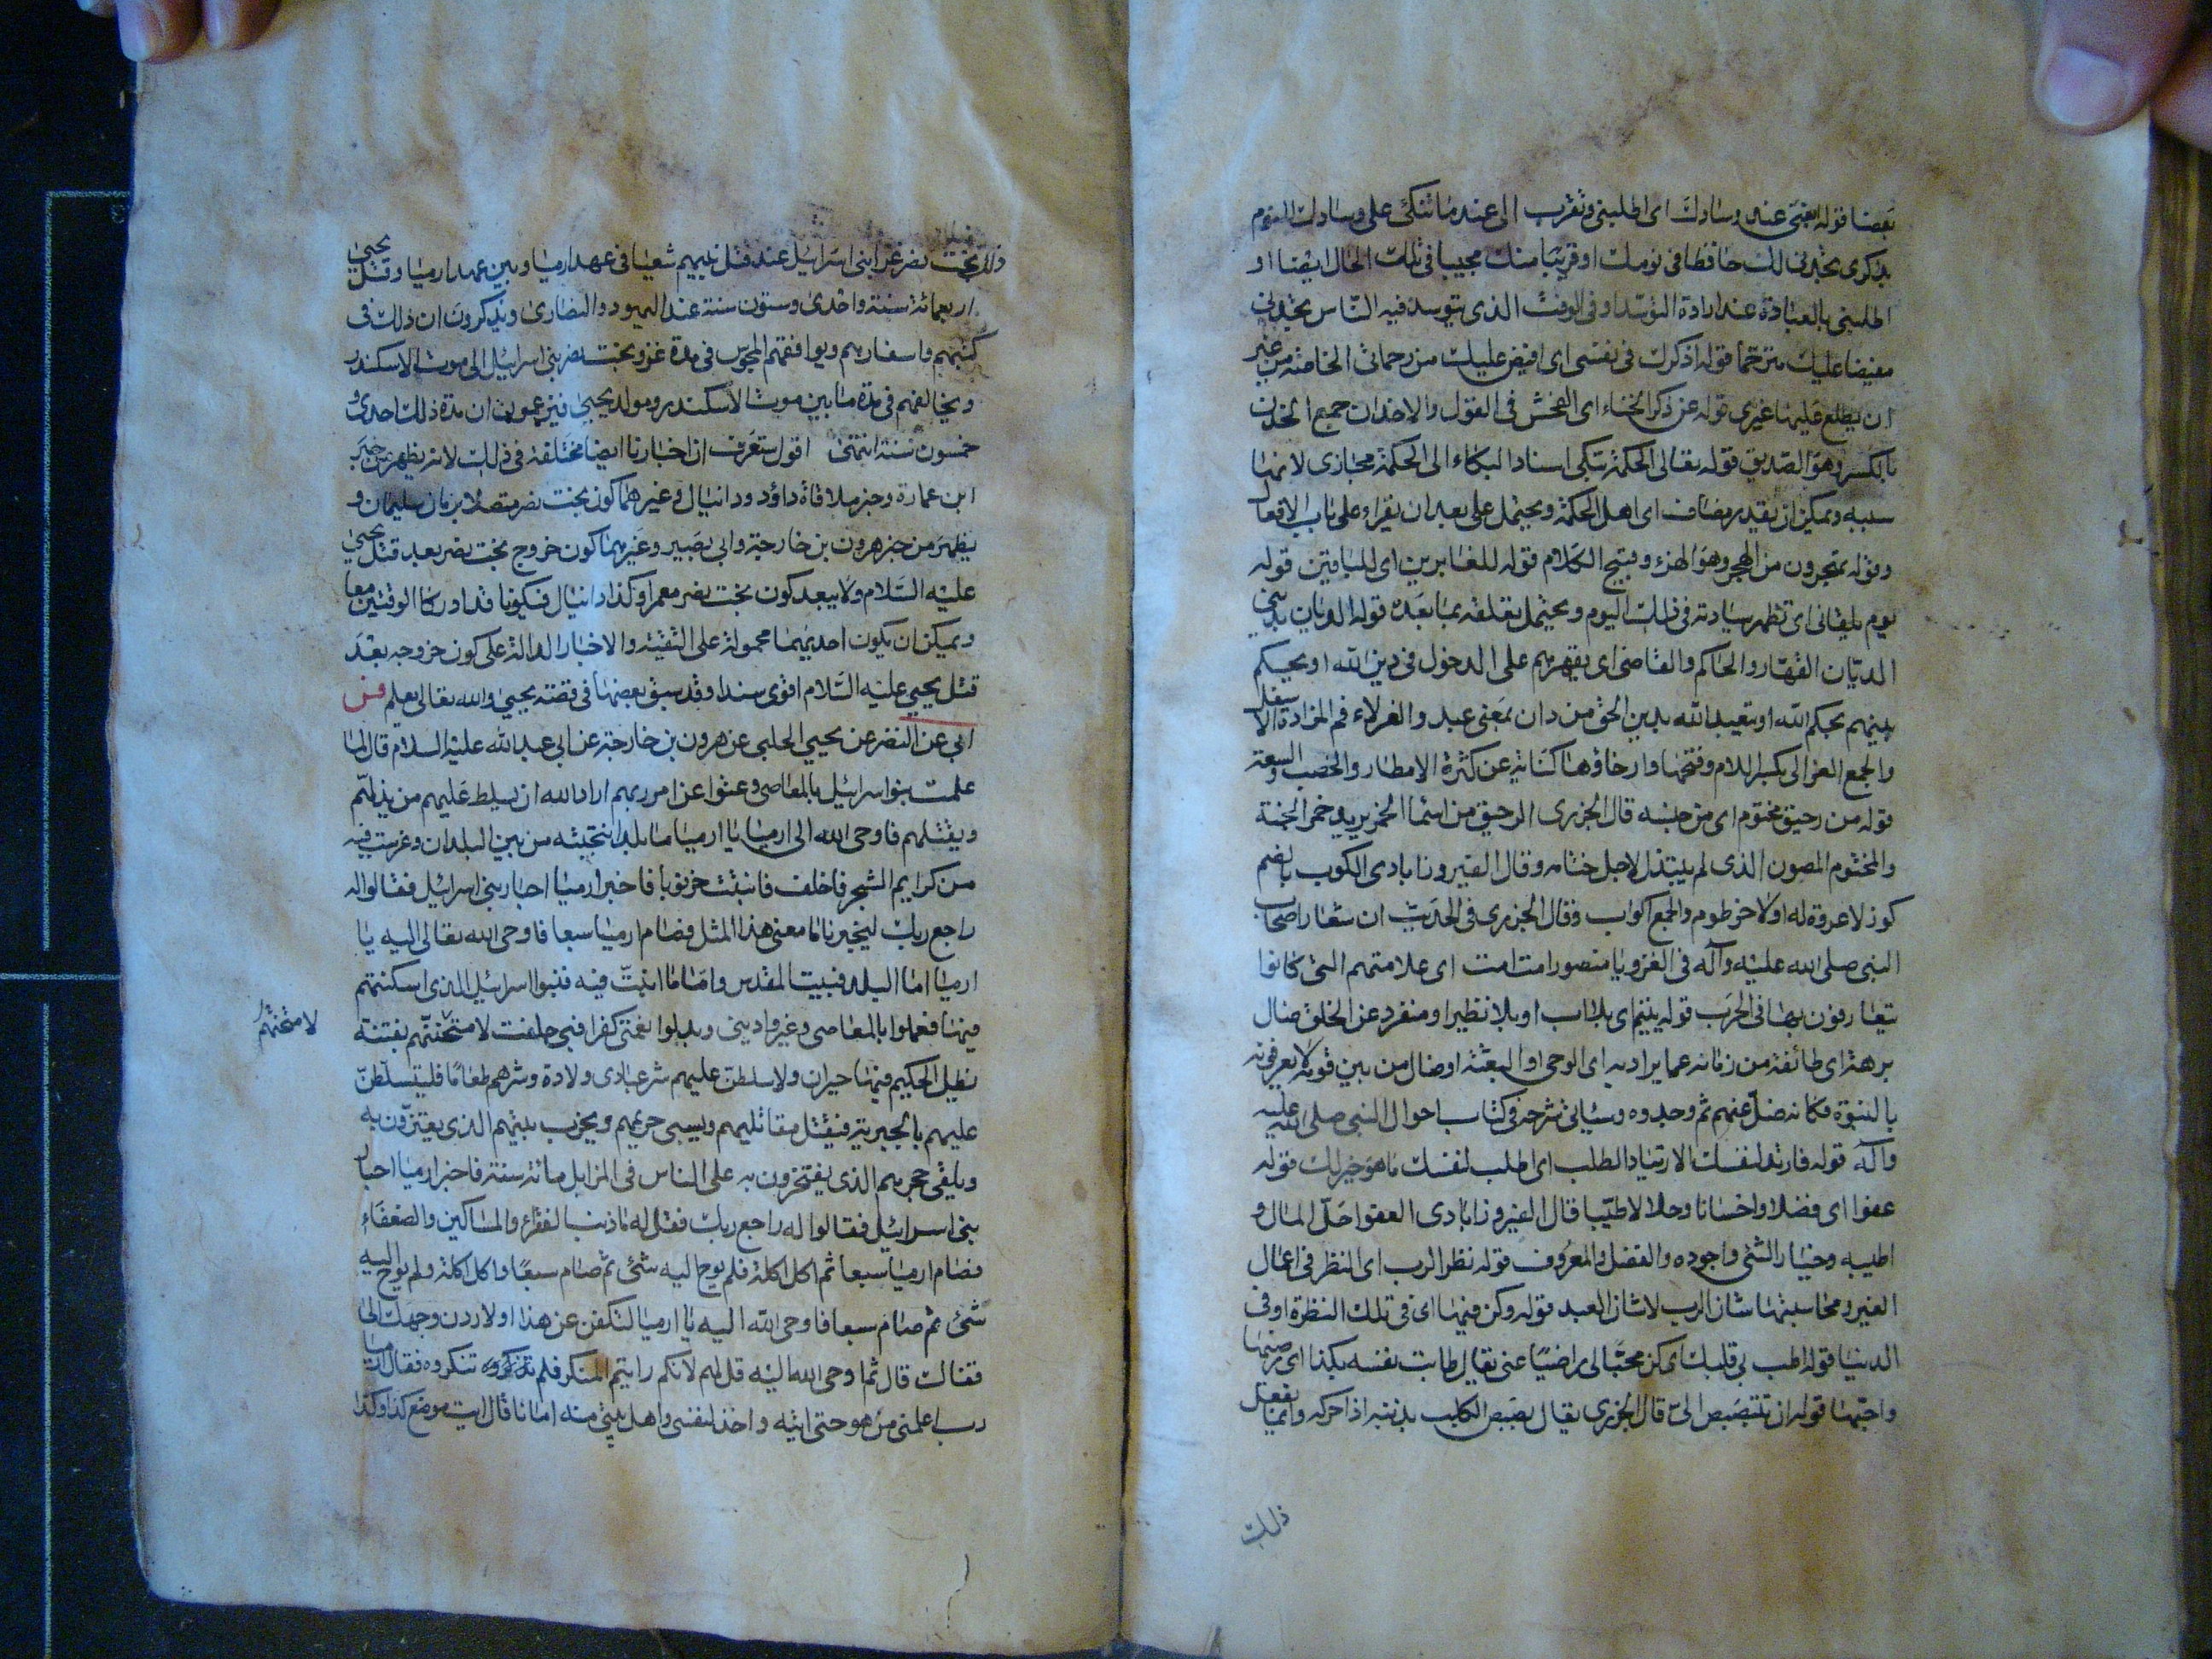 بعضا قوله ابغني عند وسادك اى اطلبني وتقرب الى عند ما تتكئ على وسادك للنوم
بذكرى تجدنى لك حافظا فى نومك او قريبا منك مجيبا فى تلك الحال ايضا او
اطلبنى بالعبادة عند ارادة التوسد او فى الوقت الذى يتوسد فيه الناس تجدنى
مفيضا عليك مترحما قوله اذكرك فى نفسى اى افيض عليك من رحماتى الخاصة من غير
ان يطلع عليها غيرى قوله عن ذكر الخناء اى الفحش فى القول والاخدان جمع الخدن
بالكسر وهو الصديق قوله تعالى الحكمة تبكى اسناد البكاء الى الحكمة مجازى لانها
سببه ويمكن ان يقدر مضاف اى اهل الحكمة ويحتمل على بعد ان يقراء على باب الافعال
وقوله تهجرون من الهجر وهو الهزء وقبيح الكلام قوله للغابرين اى للباقين قوله
يوم يلقانى اى تظهر سيادته فى ذلك اليوم ويحتمل تعلقه بما بعده قوله الديان بدينى
الديان القهار والحاكم والقاضى اى يقهرهم على الدخول فى دين الله او يحكم
بينهم بحكم الله او تعبد الله بدين الحق من دان بمعنى عبد والعزلاء فم المزادة الاسفل
والجمع العزالى بكسر اللام وفتحها وارخاؤها كناية عن كثرة الامطار والخصب والسعة
قوله من رحيق مختوم اى من جنسه قال الجزرى الرحيق من اسماء الخمر يريد خمر الجنة
والمختوم المصون الذى لم يبتذل لاجل ختامه وقال الفيروزابادى الكوب بالضم
كوز لا عروة له او لا خرطوم والجمع اكواب وقال الجزرى فى الحديث ان شعار اصحاب
النبى صلى الله عليه وآله فى الغزو يا منصور امت امت اى علامتهم التى كانوا
يتعارفون بها فى الحرب قوله يتيم اى بلا اب او بلا نظير او منفرد عن الخلق ضال
برهة اى طائفة من زمانه عما يراد به اى الوحى او البعثة او ضال من بين قومه لا يعرفونه
بالنبوة فكانه ضل عنهم ثم وجدوه وسياتى شرحه فى كتاب احوال النبى صلى الله عليه
وآله قوله فارتد لنفسك الارتياد الطلب اى اطلب لنفسك ما هو خير لك قوله
عفوا اى فضلا واحسانا وحلالا طيبا قال الفيروزابادى العفو احل المال و
اطيبه وخيار الشئ واجوده والفضل والمعروف قوله نظر الرب اى النظر فى اعمال
الغير ومحاسبتها شان الرب لا شان العبد قوله وكن فيها اى فى تلك النظرة او فى
الدنيا قوله اطب بى قلبك اى كن محبا لى راضيا عنى يقال طابت نفسه بكذا اى رضيتها
واحبتها قوله ان تتبصبص الى قال الجزرى يقال بصبص الكلب بذنبه اذا حركه وانما يفعل
ذلك
بخت نصر غزا بنى اسرائيل عند قتل نبيهم شعيا فى عهد ارميا وبين عهد ارميا وقتل يحيى
اربعمائة سنة واحدى وستون سنة عند اليهود والنصارى ويذكرون ان ذلك فى
كتبهم واسفارهم ويوافقهم المجوس فى مدة غزو بخت نصر بنى اسرائيل الى موت الاسكندر
ويخالفهم فى مدة ما بين موت الاسكندر ومولد يحيى فيزعمون ان مدة ذلك احدى و
خمسون سنة انتهى اقول ستعرف ان اخبارنا ايضا مختلفة فى ذلك لانه يظهر من خبر
ابن عمارة وخبر ملاقاة داؤد ودانيال وغيرهما كون بخت نصر متصلا بزمان سليمان و
يظهر من خبر هرون بن خارجة وابى بصير وغيرهما كون خروج بخت نصر بعد قتل يحيى
عليه السلام ولا يبعد كون بخت نصر معمرا وكذا دانيال فيكونا قد ادركا الوقتين معا
ويمكن ان يكون احديهما محمولة على التقية والاخبار الدالة على كون خروجه بعد
قتل يحيى عليه السلام اقوى سندا وقد سبق بعضها فى قصة يحيى والله تعالى يعلم
ابى عن النضر عن يحيى الحلبى عن هرون بن خارجة عن ابى عبد الله عليه السلام قال لما
عملت بنو اسرائيل بالمعاصى وعتوا عن امر ربهم اراد الله ان يسلط عليهم من يذلهم
ويقتلهم فاوحى الله الى ارميا يا ارميا ما بلد انتجبته من بين البلدان وغرست فيه
من كرايم الشجر فاخلف فانبت خرنوبا فاخبر ارميا احبار بنى اسرائيل فقالوا له
راجع ربك ليخبرنا ما معنى هذا المثل فصام ارميا سبعا فاوحى الله تعالى اليه يا
ارميا اما البلد فبيت المقدس واما ما انبت فيه فبنوا اسرائيل الذى اسكنتهم
فيها فعملوا بالمعاصى وغيروا دينى وبدلوا نعمتى كفرا فبى حلفت لامتحننهم بفتنة
لامتحننهم
يظل الحكيم فيها حيران ولاسلطن عليهم شر عبادى ولادة وشرهم طعاما فليتسلطن
عليهم بالجبرية فيقتل مقاتليهم ويسبى حريمهم ويخرب بيتهم الذى يعتزون به
ويلقى حجرهم الذى يفتخرون به على الناس فى المزابل مائة سنة فاخبر ارميا احبار
بنى اسرائيل فقالوا له راجع ربك فقل له ما ذنب الفقراء والمساكين والضعفاء
فصام ارميا سبعا ثم اكل اكلة فلم يوح اليه شئ ثم صام سبعا واكل اكلة ولم يوح اليه
شئ ثم صام سبعا فاوحى الله اليه يا ارميا لتكفن عن هذا او لاردن وجهك الى
قفاك قال ثم اوحى الله اليه قل لهم لانكم رايتم المنكر فلم تنكروه فقال ارميا
رب اعلمنى من هو حتى اتيه واخذ لنفسى واهل بيتى منه امانا قال ايت موضع كذا وكذا